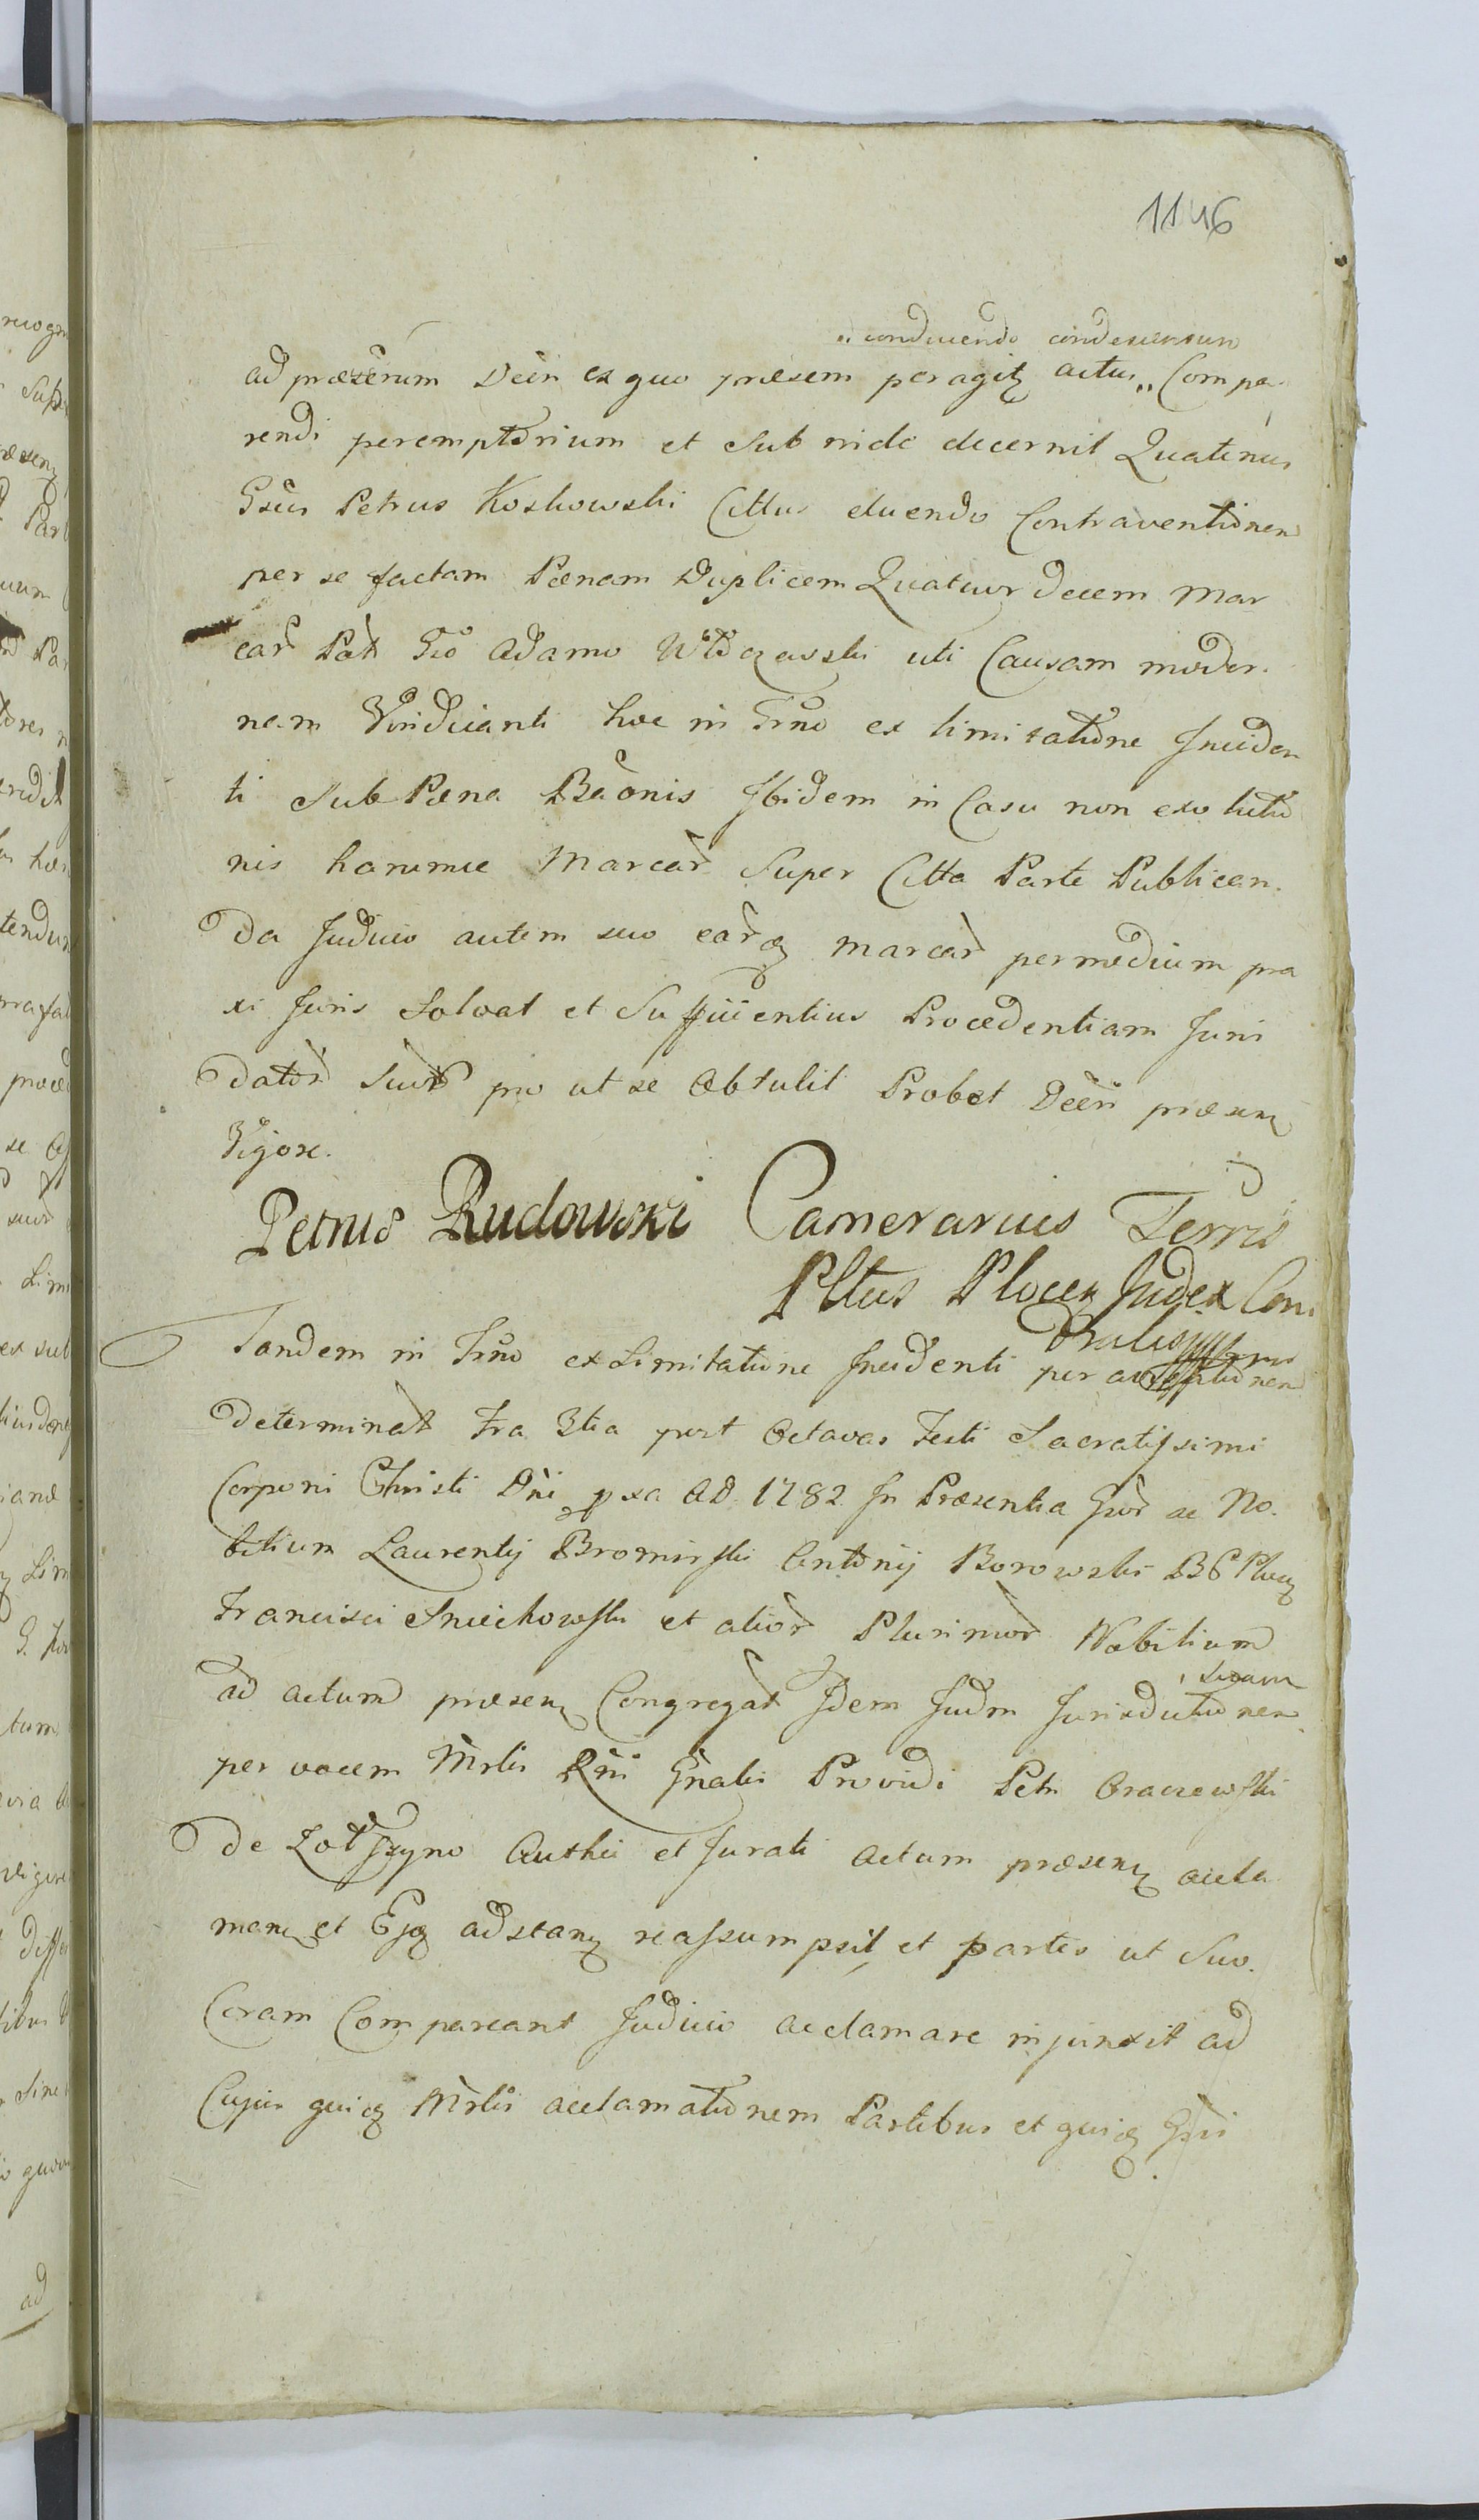 1146
„ conducendo condescensum
ad præsens Decr̃ ex quo præsem peragitꝫ actus „ Compa-
rendi peremptorium et sub nide decernit Quatenus
Gsus Petrus Koskowski Cittus eluendo Contraventionem
per se factam Pænam Duplicem Quatuor decem Mar
car̃ Pat̃ Gso Adamo uti Causam moder-
nam Vindicanti hoc in Trno ex limitatione Inciden
ti Sub Pæna Baõnis Ibidem in Casu non exolutio
nis harumce Marcar̃ Super Citta Parte Publican-
da Judicio autem suo earꝫ Marcar̃ per medium pra
xi Juris Solvat et Sufficientius Procedentiam Juri
dator̃ suor̃ pro ut se Obtulit Probet Decr̃i præsenꝫ
Vigore.
Petrus Rudowski Camerarius Terris
Pltus Plocen Judex Com
Tandem in Trno ex Limitatione Incidenti per acceptionem
determinat Fra 3tia post Octavas Festi Sacratissimi
Corporis Christi Dni pxa AD 1782 In Præsentia Gsor̃ ac No-
bilium Laurentij Bromirski Antonij Borowski BG Plocꝫ
Francisci Smiechowski et alior̃ Plurimor̃ Nobilium
suam
ad actum præsenꝫ Congregat̃ Idem Judm Jurisdictionem
per vocem Mrlis Rni Gnalis Providi Petri Graczewski
de Authci et Jurati actum præsenꝫ accla
manꝫ et Ejꝫ adstanꝫ reassumpsit, et partes ut Suo
Coram Compareant Judicio acclamare injunxit ad
Cujus quiꝫ Mrlis acclamationem Partibus et quiꝫ Gsi